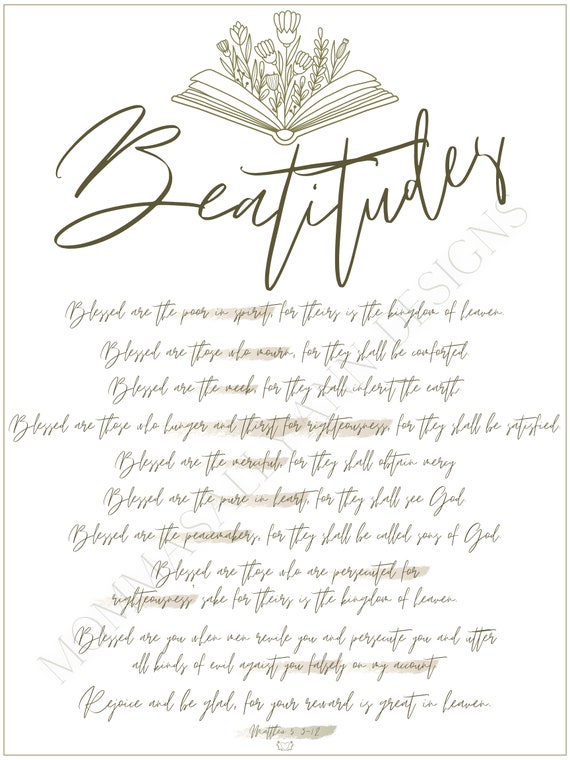 Beatitudes
Blessed are the poor in spirit, for theirs is the kingdom of heaven.
Blessed are those who mourn, for they shall be comforted
Blessed are the meek, for they shall inherit the earth
Blessed are those who hunger and thirst for righteousness, for they shall be satisfied.
Blessed are the merciful, for they shall obtain mercy
Blessed are the pure in heart, for they shall see God
Blessed are the peacemakers, for they shall be called sons of God.
Blessed are those who are persecuted for
righteousness' sake for theirs is the kingdom of heaven.
Blessed are you when men revile you and persecute you and utter
all kinds of evil agaist you falsely on my account
Rejoice and be glad, for your reward is great in heaven.
Matthew 5: 3-12
MOMMASALLYANN DESIGNS